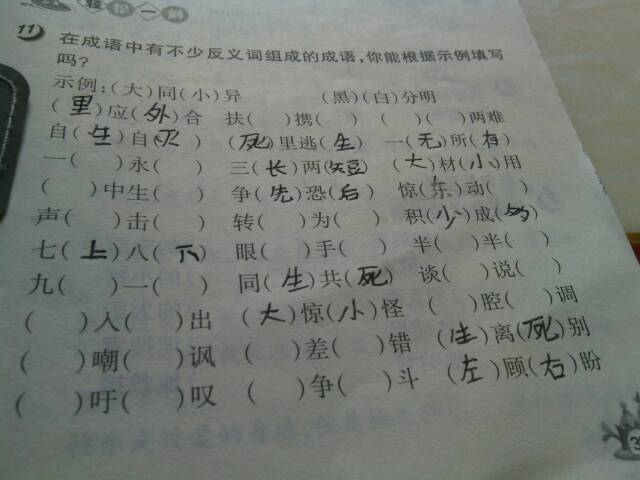 轻松一刻
11 在成语中有不少反义词组成的成语,你能根据示例填写
吗?
示例:(大)同(小)异 (黑)(白)分明
(里)应(外)合 扶( )携( ) ( )( )两难
自(生)自(灭) (死)里逃(生) 一(无)所(有)
一( )永( ) 三(长)两(短) (大)材(小)用
( )中生( ) 争(先)恐(后) 惊(东)动( )
声( )击( ) 转( )为( ) 积(少)成(多)
七(上)八(下) 眼( )手( ) 半( )半( )
九( )一( ) 同(生)共(死) 谈( )说( )
( )入( )出 (大)惊(小)怪 ( )腔( )调
( )嘲( )讽 ( )差( )错 (生)离(死)别
( )吁( )叹 ( )争( )斗 (左)顾(右)盼